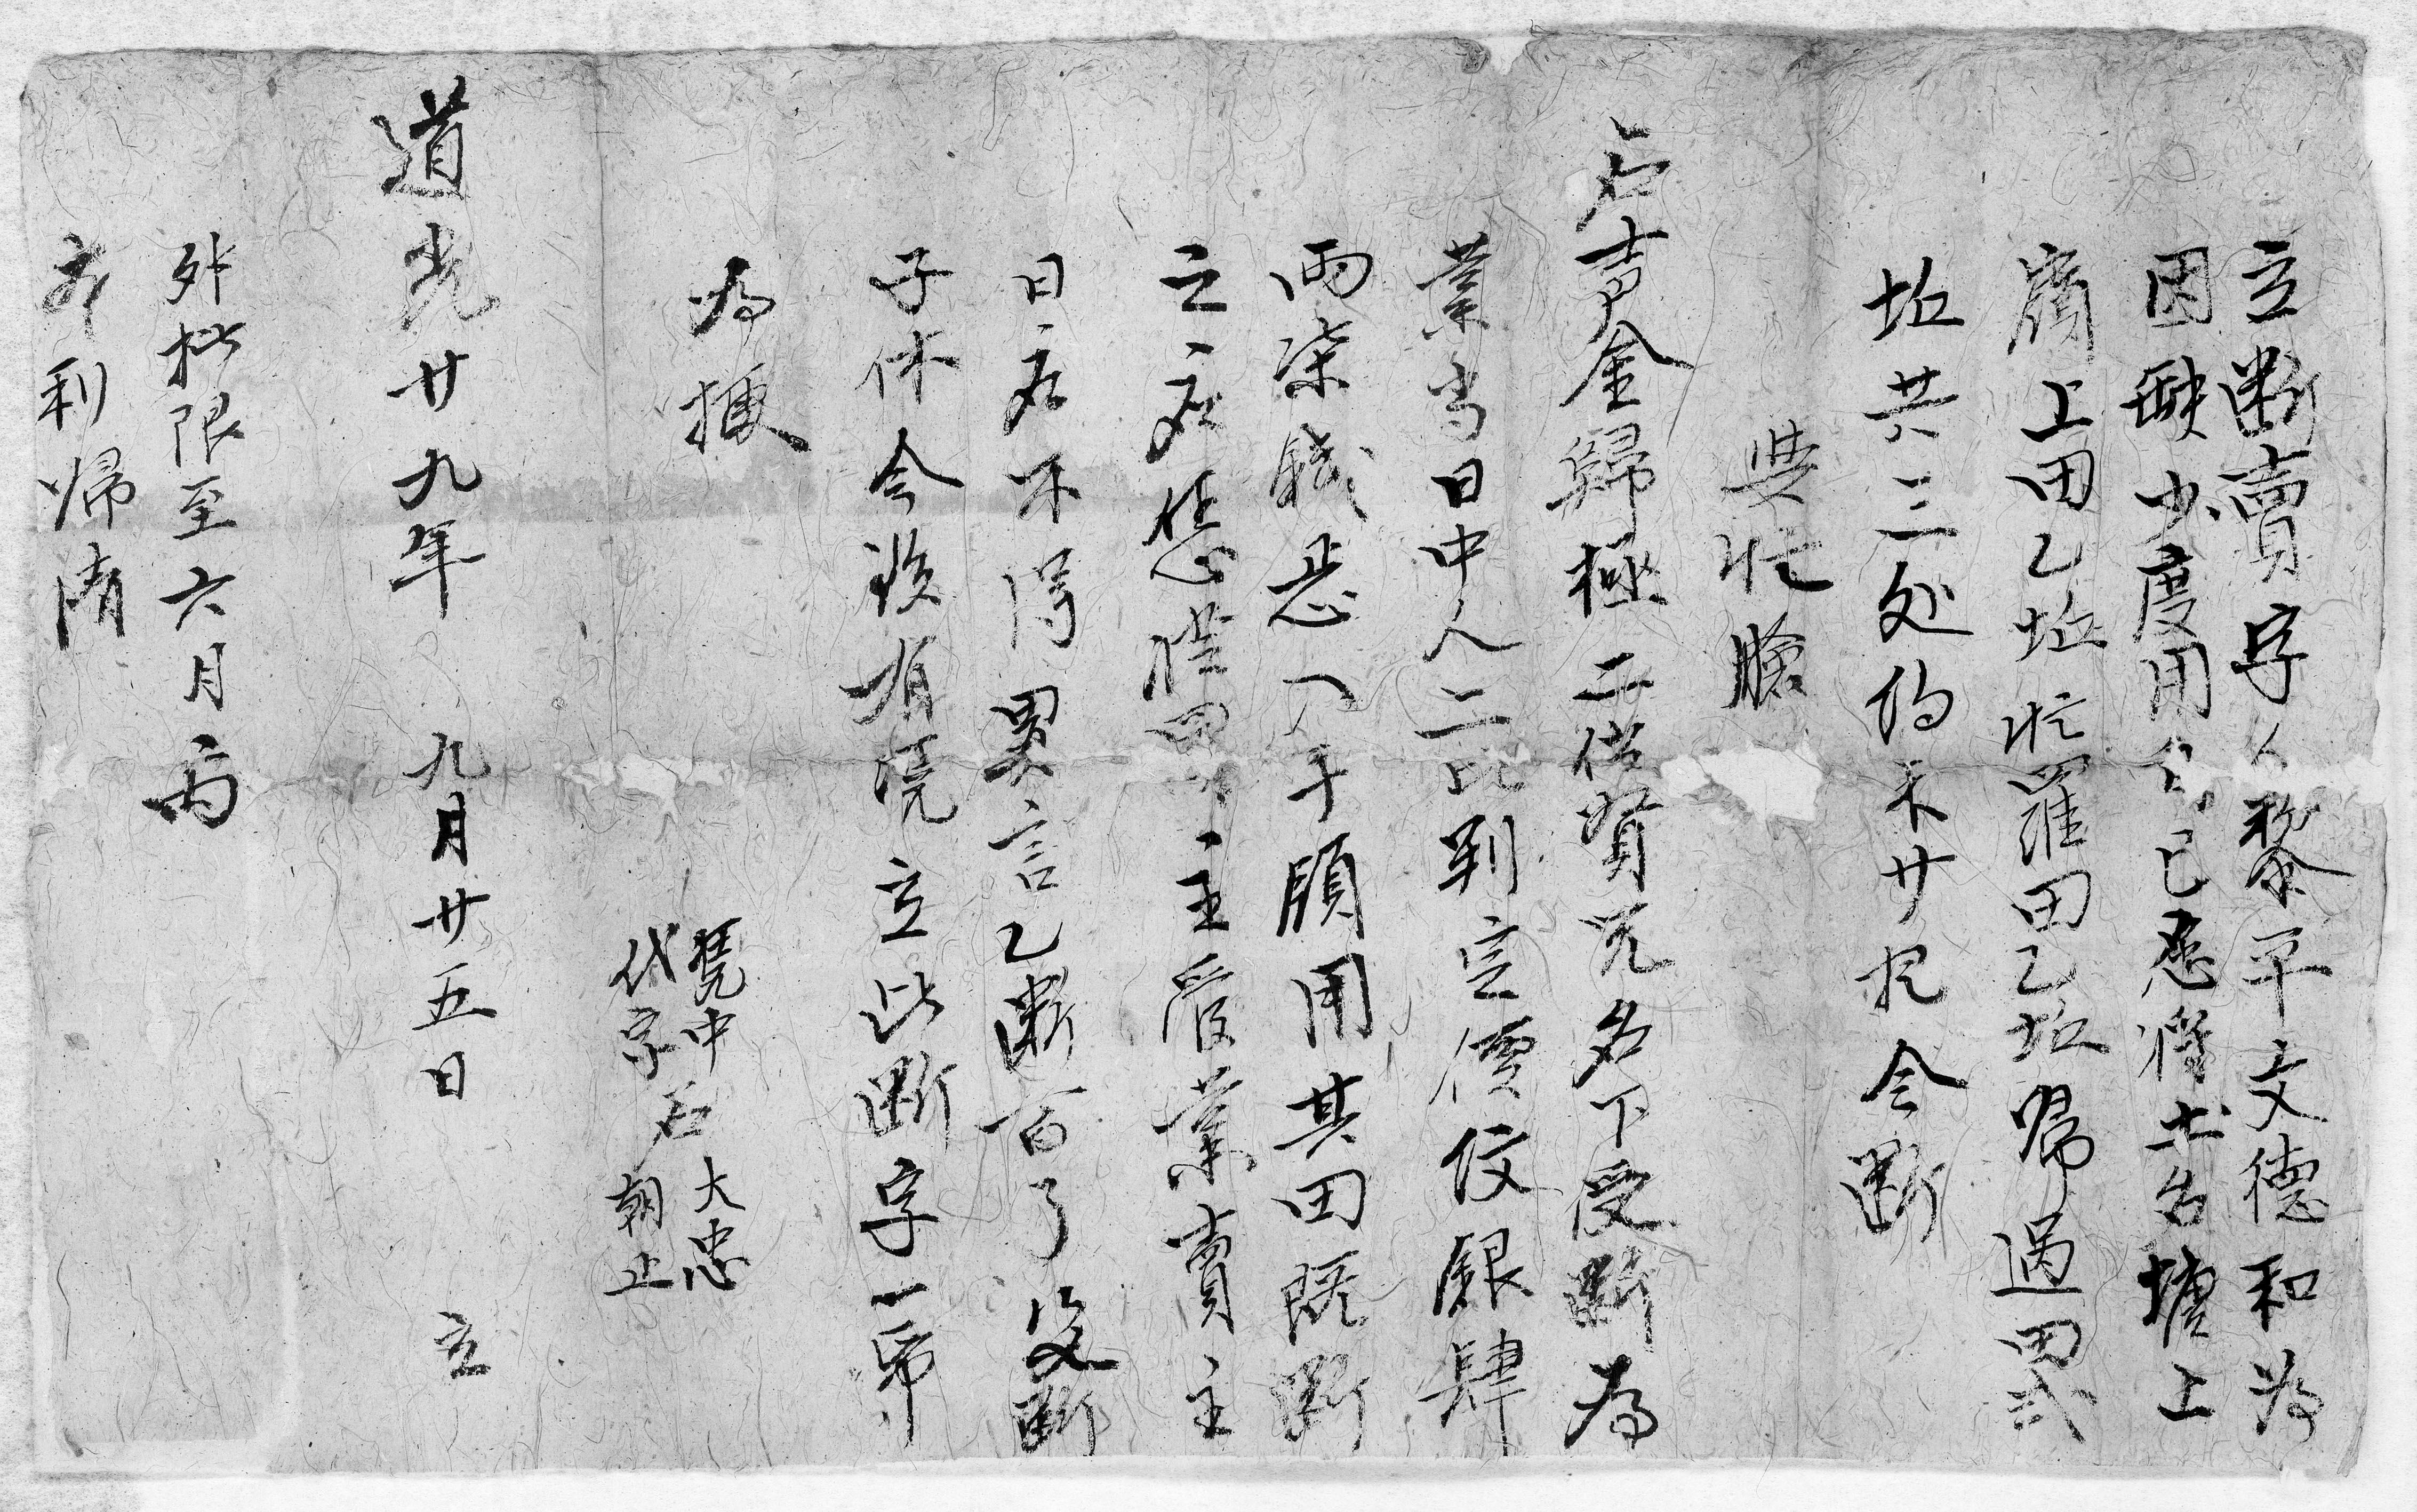 立断賣字人黎平文德和為
因缺少度用自己愿將土名塘上
上田乙坵忙羅田乙坵歸過田弍
坵共三处約禾廿把今断
與忙臉
石声金歸極二位賢兄名下受断為
業当日中人二比到定價纹銀肆
両柒錢足入手領用其田既断
之后恁從田主管業賣主
日后不得異言乙断百了父断
子休今欲有凴立此断字一帋
為據
凴中 大忠
石
代字 朝止
道光廿九年 九月廿五日 立
外批限至六月內
本利歸清